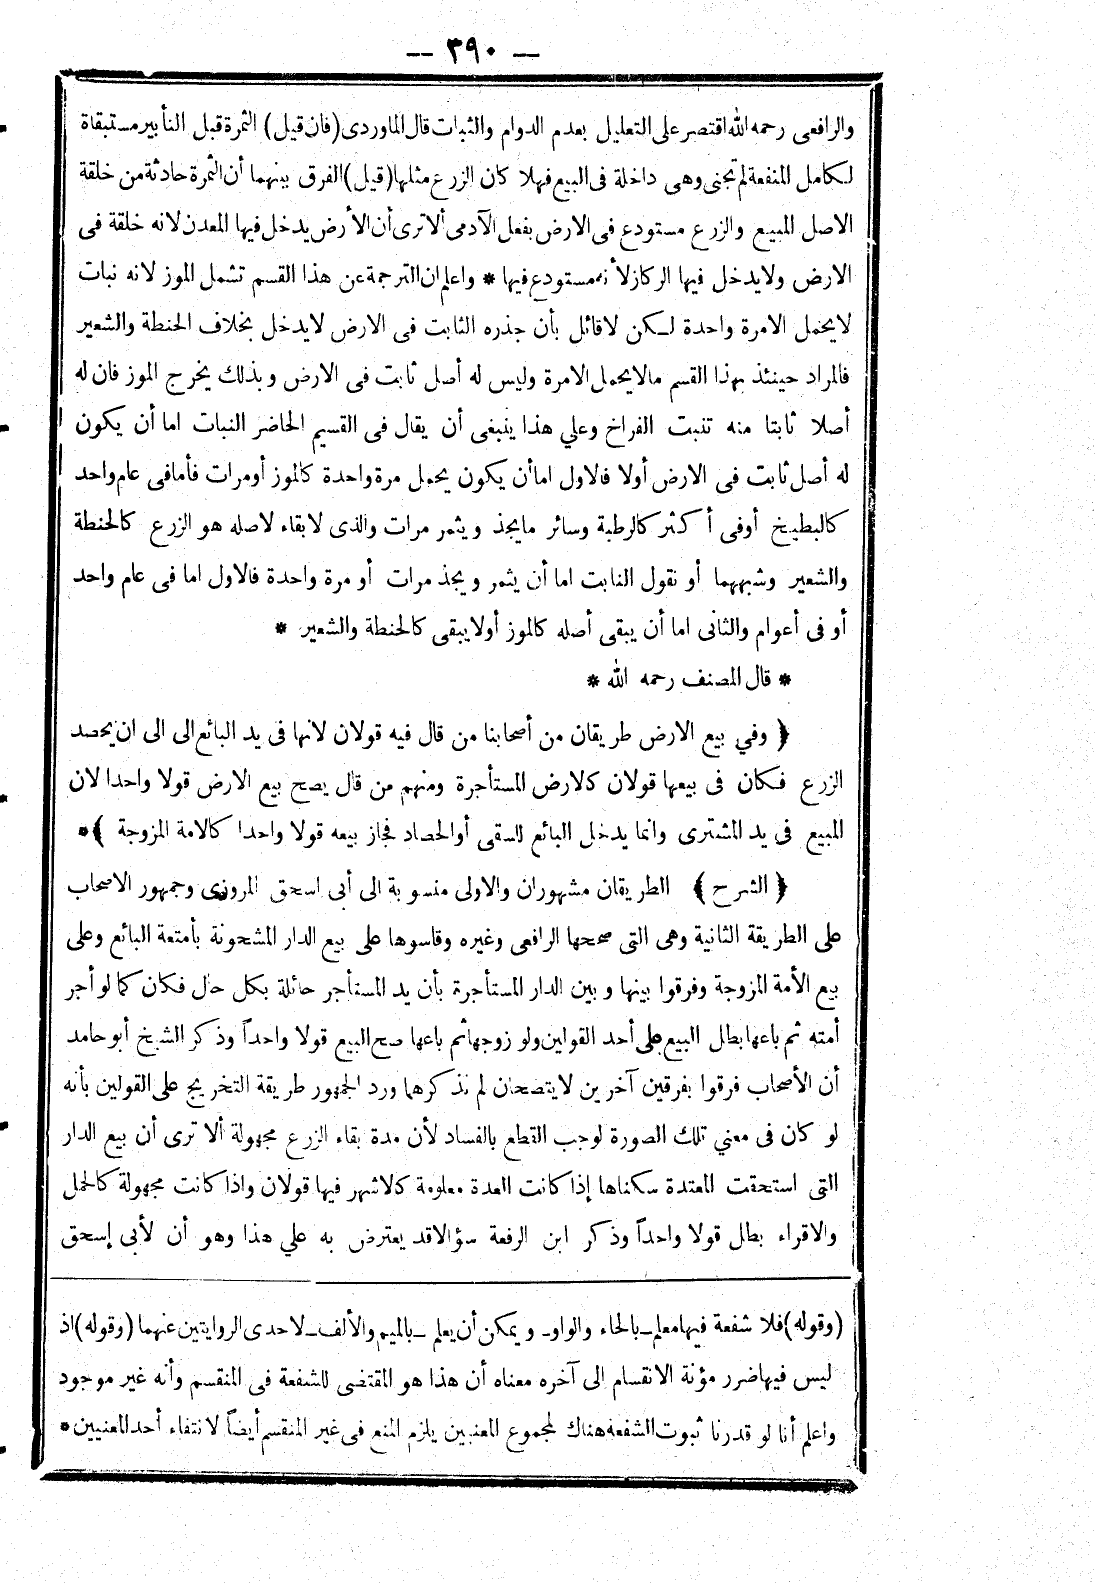 — ٣٩٠ —
والرافعى رحمه الله اقتصر على التعليل بعدم الدوام والثبات قال الماوردى (فان قيل) الثمرة قبل التأبير مستبقاة
لكامل المنفعة لم تجنى وهى داخلة فى البيع فهلا كان الزرع مثلها (قيل) الفرق بينهما أن الثمرة حادثة من خلقة
الاصل المبيع والزرع مستودع فى الارض بفعل الآدمى ألا ترى أن الأرض يدخل فيها المعدن لانه خلقة فى
الارض ولايدخل فيها الركاز لأنه مستودع فيها * واعلم ان الترجمة عن هذا القسم تشمل الموز لانه نبات
لايحمل الامرة واحدة لكن لاقائل بأن جذره الثابت فى الارض لايدخل بخلاف الحنطة والشعير
فالمراد حينئذ بهذا القسم مالايحمل الامرة وليس له أصل ثابت فى الارض وبذلك يخرج الموز فان له
أصلا ثابتا منه تنبت الفراخ وعلي هذا ينبغى أن يقال فى القسيم الحاضر النبات اما أن يكون
له أصل ثابت فى الارض أولا فالاول اما أن يكون يحمل مرة واحدة كالموز أومرات فأمافى عام واحد
كالبطيخ أوفى أكثر كالرطبة وسائر مايجذ ويثمر مرات والذى لابقاء لاصله هو الزرع كالحنطة
والشعير وشبههما أو نقول النابت اما أن يثمر ويجذ مرات أو مرة واحدة فالاول اما فى عام واحد
أو فى أعوام والثانى اما أن يبقى أصله كالموز أولايبقى كالحنطة والشعير *
* قال المصنف رحمه الله *
﴿ وفي بيع الارض طريقان من أصحابنا من قال فيه قولان لانها فى يد البائع الى الى ان يحصد
الزرع فكان فى بيعها قولان كالارض المستأجرة ومنهم من قال يصح بيع الارض قولا واحدا لان
المبيع فى يد المشترى وانما يدخل البائع للسقى أوالحصاد فجاز بيعه قولا واحدا كالامة المزوجة ﴾ *
﴿ الشرح ﴾ الطريقان مشهوران والاولى منسوبة الى أبى اسحق المروزى وجمهور الاصحاب
على الطريقة الثانية وهى التى صححها الرافعى وغيره وقاسوها على بيع الدار المشحونة بأمتعة البائع وعلى
بيع الأمة المزوجة وفرقوا بينها وبين الدار المستأجرة بأن يد المستأجر حائلة بكل حال فكان كما لو أجر
أمته ثم باعها بطال البيع على أحد القولين ولو زوجها ثم باعها صح البيع قولا واحداً وذكر الشيخ أبو حامد
أن الأصحاب فرقوا بفرقين آخرين لايتضحان لم نذكرهما ورد الجمهور طريقة التخريج على القولين بأنه
لو كان فى معني تلك الصورة لوجب القطع بالفساد لأن مدة بقاء الزرع مجهولة ألا ترى أن بيع الدار
التى استحقت المعتدة سكناها إذا كانت العدة معلومة كالاشهر فيها قولان واذا كانت مجهولة كالحمل
والاقراء بطال قولا واحداً وذكر ابن الرفعة سؤالا قد يعترض به علي هذا وهو أن لأبى إسحق
(وقوله) فلا شفعة فيها معلم ـ بالحاء والواو ـ ويمكن أن يعلم ـ بالميم والألف ـ لاحدى الروايتين عنهما (وقوله) اذ
ليس فيها ضرر مؤنة الانقسام الى آخره معناه أن هذا هو المقتضى للشفعة فى المنقسم وأنه غير موجود
واعلم أنا لو قدرنا ثبوت الشفعة هناك لمجموع المعنيين يلزم المنع فى غير المنقسم أيضاً لانتفاء أحد المعنيين *